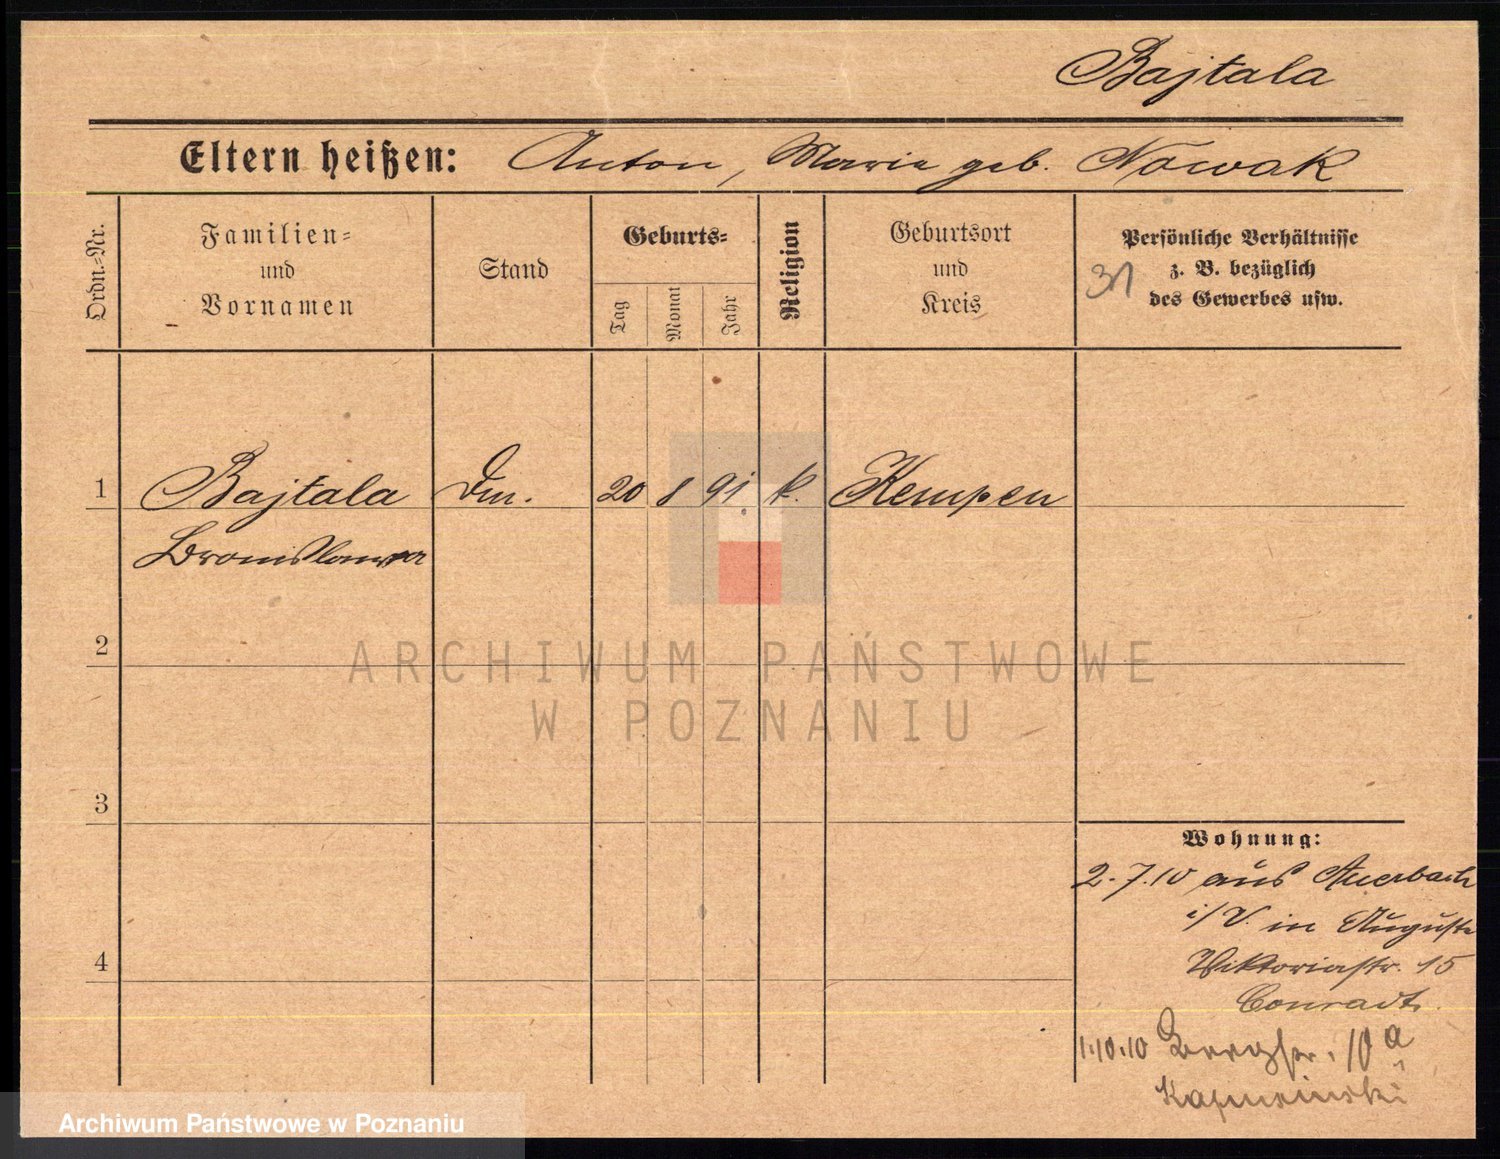 Bajtala
Eltern heißen: Anton, Marie geb. Nowak
Ordn.-Nr.
Familien-
und
Vornamen
Stand
Geburts-
Tag
Monat
Jahr
Religion
Geburtsort
und
Kreis
Persönliche Verhältnisse
z. B. bezüglich
des Gewerbes usw.
31
1 Bajtala Dm. 20 8 91 k. Kempen
Bronislawa
2
ARCHIWUM PAŃSTWOWE
W POZNANIU
3
Wohnung:
2.7.10 aus Auerbach
i/V. in Auguste
Viktoriastr. 15
Conradt.
4
1.10.10 Bergstr. 10a
Archiwum Państwowe w Poznaniu